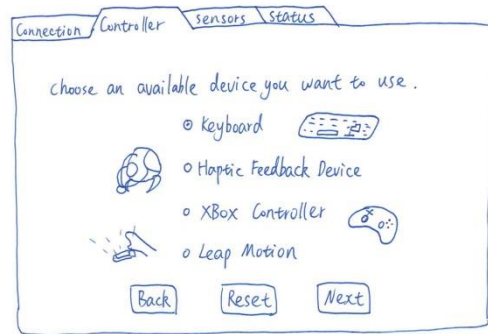 Connection Controller sensors status
choose an available device you want to use.
Keyboard
Haptic Feedback Device
XBox Controller
Leap Motion
Back Reset Next